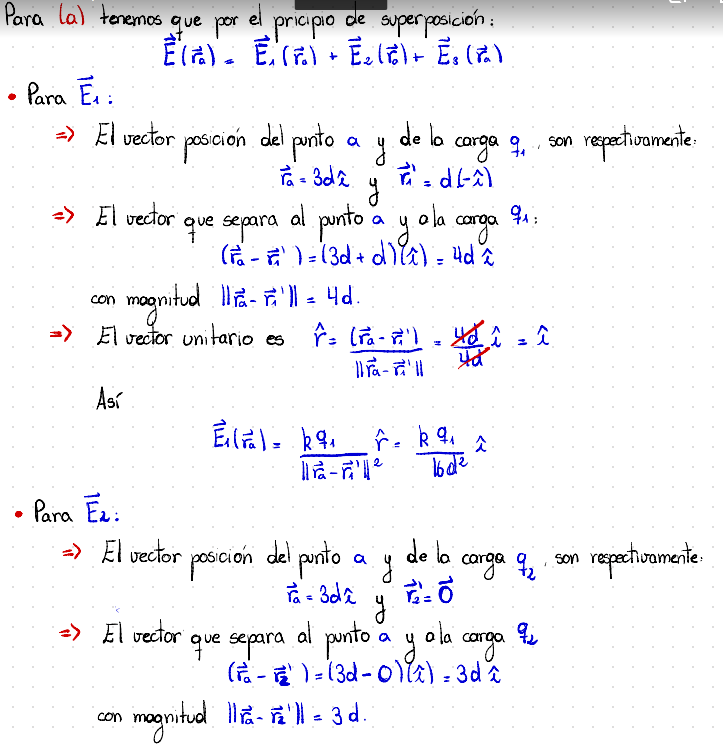 Para (a) tenemos que por el pricipio de superposición:
E⃗(r⃗a) = E⃗1(r⃗a) + E⃗2(r⃗a) + E⃗3(r⃗a)
• Para E⃗1:
=> El vector posición del punto a y de la carga q1, son respectivamente:
r⃗a = 3d î y r⃗1' = d(-î)
=> El vector que separa al punto a y a la carga q1:
(r⃗a - r⃗1') = (3d + d)(î) = 4d î
con magnitud ||r⃗a - r⃗1'|| = 4d.
=> El vector unitario es r̂ = (r⃗a - r⃗1') / ||r⃗a - r⃗1'|| = 4d/4d î = î
Así
E⃗1(r⃗a) = k q1 / ||r⃗a - r⃗1'||² r̂ = k q1 / 16d² î
• Para E⃗2:
=> El vector posición del punto a y de la carga q2, son respectivamente:
r⃗a = 3d î y r⃗2' = 0⃗
=> El vector que separa al punto a y a la carga q2
(r⃗a - r⃗2') = (3d - 0)(î) = 3d î
con magnitud ||r⃗a - r⃗2'|| = 3d.